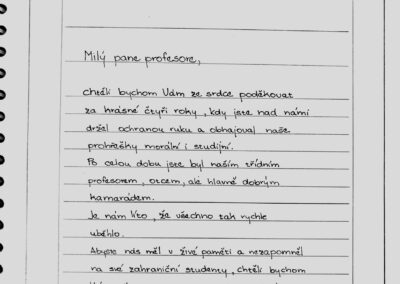 Milý pane profesore,
chtěli bychom Vám ze srdce poděkovat
za krásné čtyři roky, kdy jste nad námi
držel ochranou ruku a obhajoval naše
prohřešky morální i studijní.
Po celou dobu jste byl naším třídním
profesorem, otcem, ale hlavně dobrým
kamarádem.
Je nám líto, že všechno tak rychle
uběhlo.
Abyste nás měl v živé paměti a nezapomněl
na své zahraniční studenty, chtěli bychom